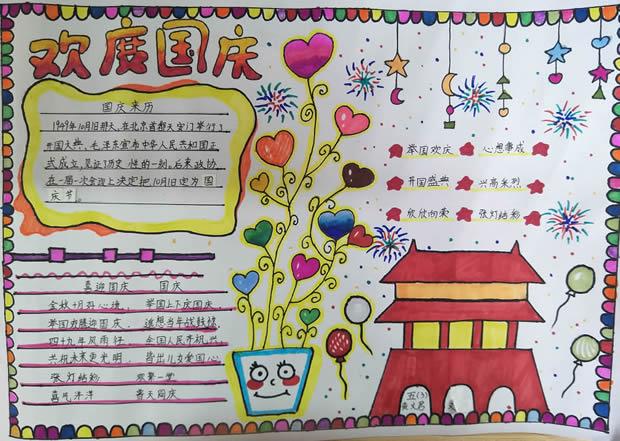 欢度国庆
国庆来历
1949年10月1日那天,在北京首都天安门举行了
开国大典,毛泽东宣布中华人民共和国正
式成立,见证了历史性的一刻。后来政协
在一届一次会议上决定把10月1日定为国
庆节。
举国欢庆 心想事成
开国盛典 兴高采烈
欣欣向荣 张灯结彩
喜迎国庆 国庆
金秋十月好心境, 举国上下庆国庆
举国欢腾迎国庆, 追想当年战鼓擂,
四十九年风雨行 全国人民齐振兴
共祝未来更光明, 各出儿女爱国心
张灯结彩 欢聚一堂
喜气洋洋 普天同庆
五(3)